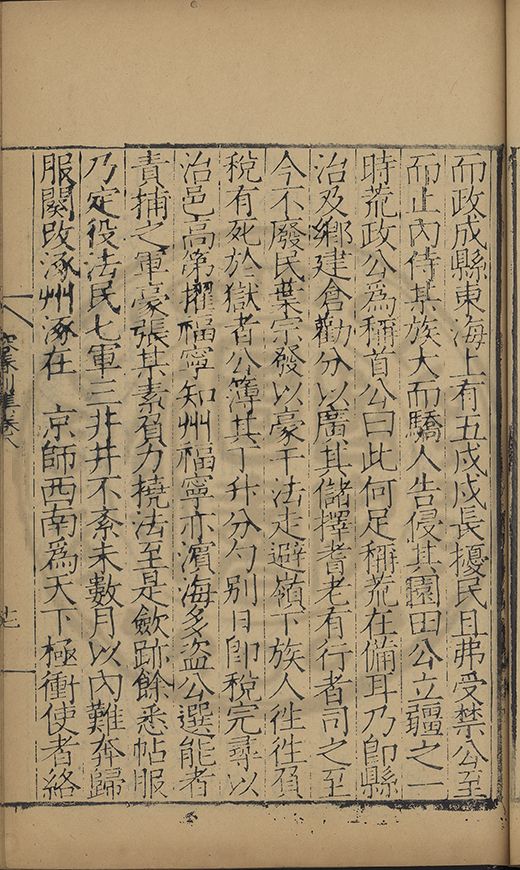 而政成縣東海上有五戍戍長擾民且弗受禁公至
而止內侍某族大而驕人告侵其園田公立疆之一
時荒政公爲稱首公曰此何足稱荒在備耳乃卽縣
治及鄉建倉勸分以廣其儲擇耆老有行者司之至
今不廢民葉宗發以豪干法走避嶺下族人徃徃負
稅有死於獄者公簿其丁升分勺別日卽稅完尋以
治邑高第擢福寧知州福寧亦濵海多盗公選能者
責捕之軍豪張某素負力撓法至是歛跡餘悉帖服
乃定役法民七軍三井井不紊未數月以內難奔歸
服闋改涿州涿在 京師西南爲天下極衝使者絡